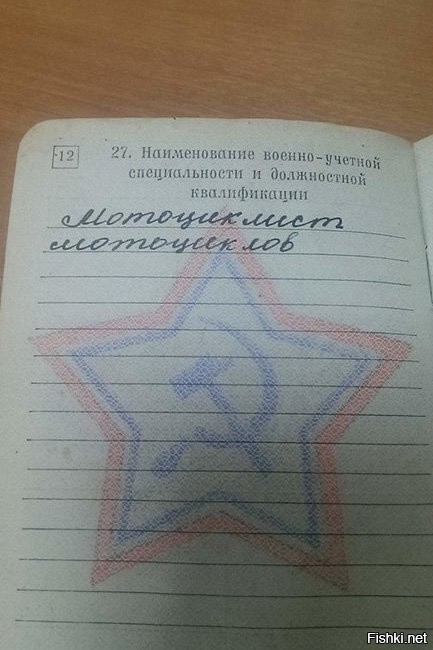 12
27. Наименование военно-учетной
специальности и должностной
квалификации
Мотоциклист
мотоциклов
Fishki.net